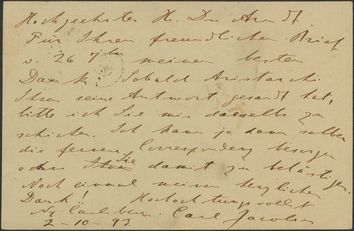 Hochgeehrter H. Dr. Arndt.
Für Ihren freundlichen Brief
v. 26 meinen besten
Dank. Sobald Aristarchi
Ihnen seine Antwort gesandt hat,
bitte ich Sie mir dieselbe zu
schicken. Ich kann ja dann selber
die fernere Correspondenz besorgen
oder Sie damit zu belästigen.
Noch einmal meinen herzlichen
Dank! Hochachtungsvollst
Ny Carlsberg. Carl Jacobsen
2-10-93